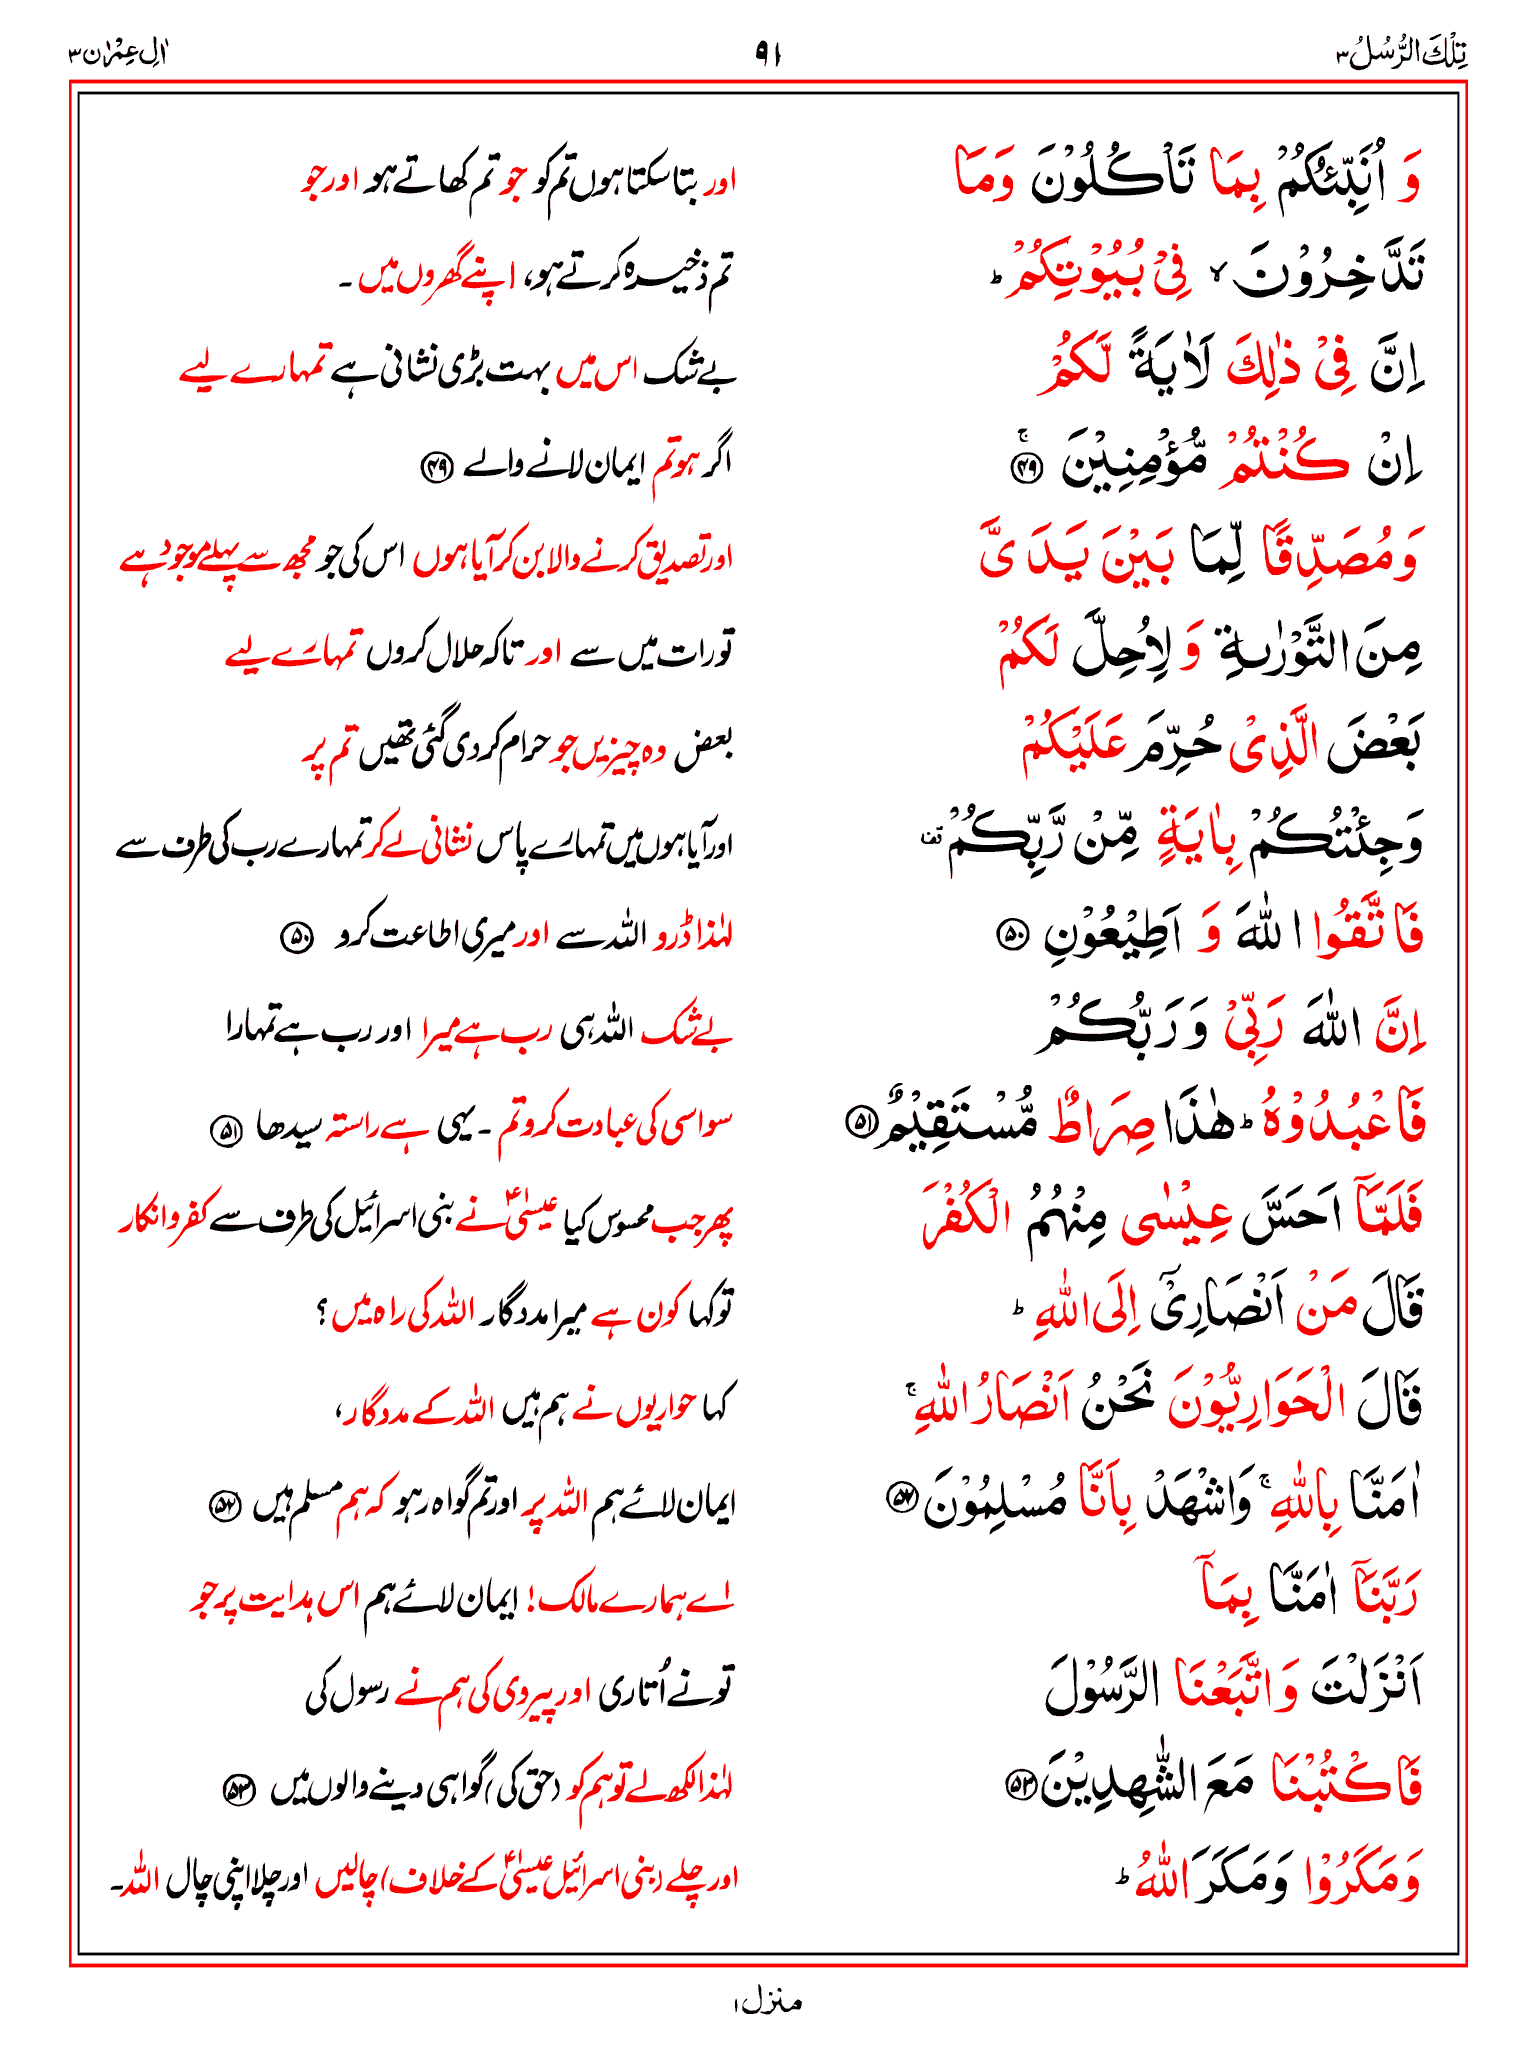 تِلْكَ الرُّسُلُ ٣ ٩١ اٰلِ عِمْرٰن ٣
وَ اُنَبِّئُكُمْ بِمَا تَاْكُلُوْنَ وَمَا اور بتا سکتا ہوں تم کو جو تم کھاتے ہو اور جو
تَدَّخِرُوْنَ ۙ فِیْ بُیُوْتِكُمْ ؕ تم ذخیرہ کرتے ہو، اپنے گھروں میں ۔
اِنَّ فِیْ ذٰلِكَ لَاٰیَةً لَّكُمْ بے شک اس میں بہت بڑی نشانی ہے تمہارے لیے
اِنْ كُنْتُمْ مُّؤْمِنِیْنَ ۚ ﴿۴۹﴾ اگر ہو تم ایمان لانے والے ﴿۴۹﴾
وَمُصَدِّقًا لِّمَا بَیْنَ یَدَیَّ اور تصدیق کرنے والا بن کر آیا ہوں اس کی جو مجھ سے پہلے موجود ہے
مِنَ التَّوْرٰىةِ وَ لِاُحِلَّ لَكُمْ تورات میں سے اور تاکہ حلال کروں تمہارے لیے
بَعْضَ الَّذِیْ حُرِّمَ عَلَیْكُمْ بعض وہ چیزیں جو حرام کر دی گئی تھیں تم پر
وَجِئْتُكُمْ بِاٰیَةٍ مِّنْ رَّبِّكُمْ قف اور آیا ہوں میں تمہارے پاس نشانی لے کر تمہارے رب کی طرف سے
فَاتَّقُوا اللّٰهَ وَ اَطِیْعُوْنِ ﴿۵۰﴾ لہٰذا ڈرو اللہ سے اور میری اطاعت کرو ﴿۵۰﴾
اِنَّ اللّٰهَ رَبِّیْ وَ رَبُّكُمْ بے شک اللہ ہی رب ہے میرا اور رب ہے تمہارا
فَاعْبُدُوْهُ ؕ هٰذَا صِرَاطٌ مُّسْتَقِیْمٌ ﴿۵۱﴾ سو اسی کی عبادت کرو تم ۔ یہی ہے راستہ سیدھا ﴿۵۱﴾
فَلَمَّاۤ اَحَسَّ عِیْسٰی مِنْهُمُ الْكُفْرَ پھر جب محسوس کیا عیسیٰؑ نے بنی اسرائیل کی طرف سے کفر و انکار
قَالَ مَنْ اَنْصَارِیْۤ اِلَی اللّٰهِ ؕ تو کہا کون ہے میرا مددگار اللہ کی راہ میں ؟
قَالَ الْحَوَارِیُّوْنَ نَحْنُ اَنْصَارُ اللّٰهِ ۚ کہا حواریوں نے ہم ہیں اللہ کے مددگار،
اٰمَنَّا بِاللّٰهِ ۚ وَاشْهَدْ بِاَنَّا مُسْلِمُوْنَ ﴿۵۲﴾ ایمان لائے ہم اللہ پر اور تم گواہ رہو کہ ہم مسلم ہیں ﴿۵۲﴾
رَبَّنَاۤ اٰمَنَّا بِمَاۤ اے ہمارے مالک! ایمان لائے ہم اس ہدایت پر جو
اَنْزَلْتَ وَاتَّبَعْنَا الرَّسُوْلَ تو نے اُتاری اور پیروی کی ہم نے رسول کی
فَاكْتُبْنَا مَعَ الشّٰهِدِیْنَ ﴿۵۳﴾ لہٰذا لکھ لے تو ہم کو (حق کی) گواہی دینے والوں میں ﴿۵۳﴾
وَمَكَرُوْا وَمَكَرَ اللّٰهُ ؕ اور چلے (بنی اسرائیل عیسیٰؑ کے خلاف) چالیں اور چلا اپنی چال اللہ۔
منزل ۱